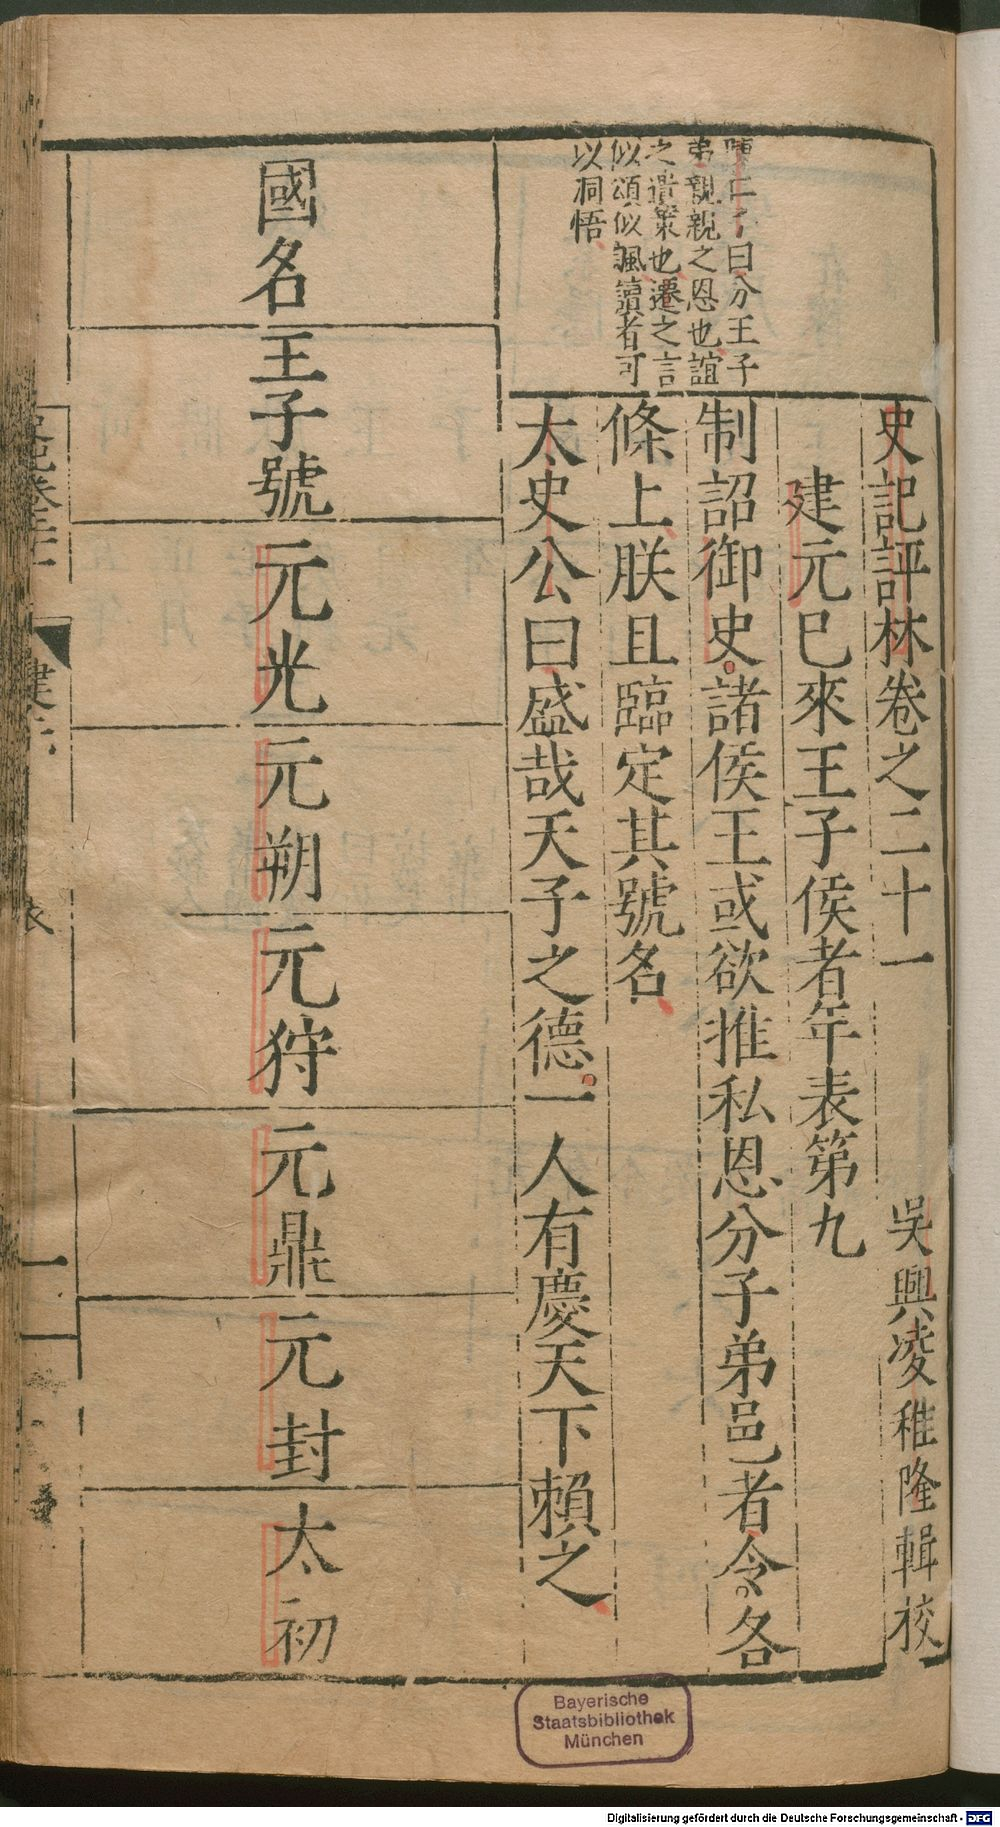 史記評林卷之二十一
吳興凌稚隆輯校
建元已來王子侯者年表第九
制詔御史諸侯王或欲推私恩分子弟邑者令各
條上朕且臨定其號名
太史公曰盛哉天子之德一人有慶天下賴之
陳仁子曰分王子
弟親親之恩也誼
之遺策也遷之言
似頌似諷讀者可
以洞悟
國名
王子號
元光
元朔
元狩
元鼎
元封
太初
表
一
Bayerische
Staatsbibliothek
München
Digitalisierung gefördert durch die Deutsche Forschungsgemeinschaft - DFG